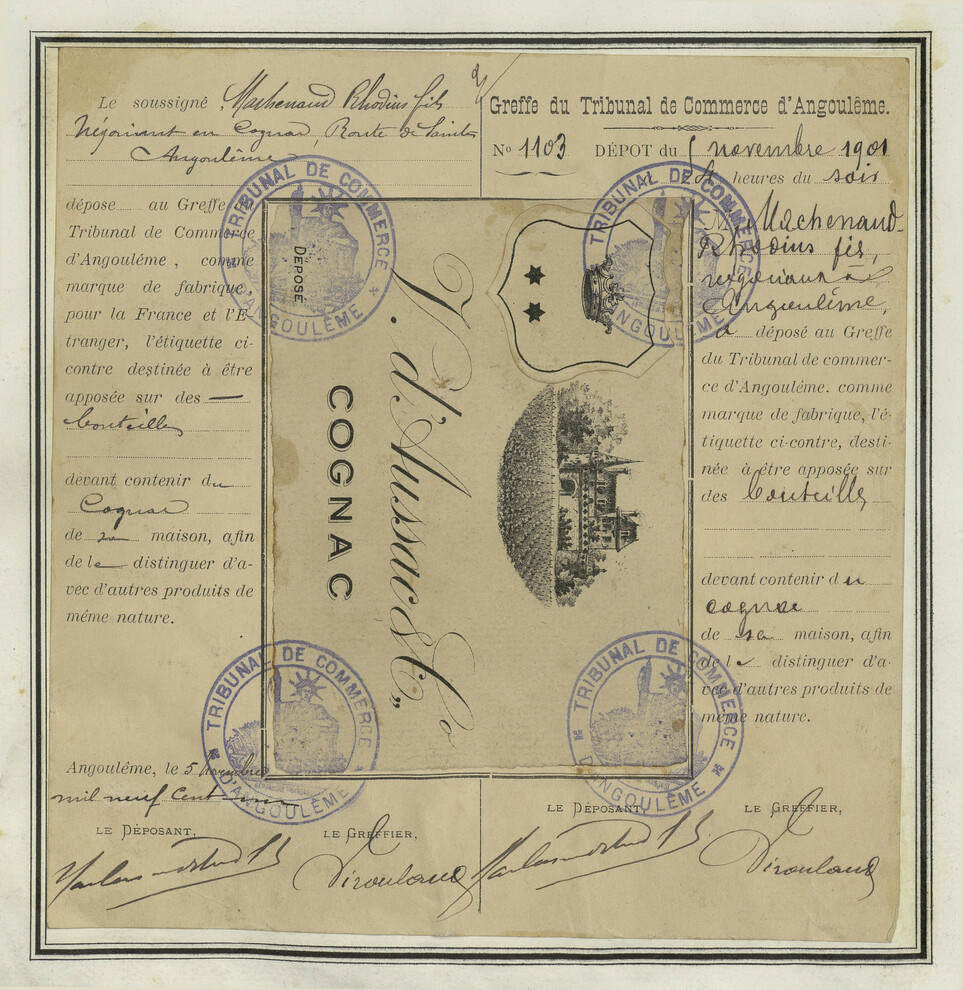 Le soussigné, Machenaud Rhodius fils
Négociant en Cognac, Route de Saintes
Angoulême
dépose au Greffe du
Tribunal de Commerce
d'Angoulême, comme
marque de fabrique,
pour la France et l'E-
tranger, l'étiquette ci-
contre destinée à être
apposée sur des
bouteilles
devant contenir du
Cognac
de sa maison, afin
de le distinguer d'a-
vec d'autres produits de
même nature.
Angoulême, le 5 novembre
mil neuf cent un
LE DÉPOSANT,
LE GREFFIER,
Greffe du Tribunal de Commerce d'Angoulême.
No 1103 DÉPOT du 5 novembre 1901
heures du soir
M. Machenaud-
Rhodius fils,
négociant à
Angoulême,
a déposé au Greffe
du Tribunal de commer-
ce d'Angoulême. comme
marque de fabrique, l'é-
tiquette ci-contre, desti-
née à être apposée sur
des bouteilles
devant contenir du
cognac
de sa maison, afin
de le distinguer d'a-
vec d'autres produits de
même nature.
LE DÉPOSANT,
LE GREFFIER,
V. d'Aussac & Co
COGNAC
DÉPOSÉ
TRIBUNAL DE COMMERCE
D'ANGOULÊME
TRIBUNAL DE COMMERCE
D'ANGOULÊME
TRIBUNAL DE COMMERCE
D'ANGOULÊME
TRIBUNAL DE COMMERCE
D'ANGOULÊME